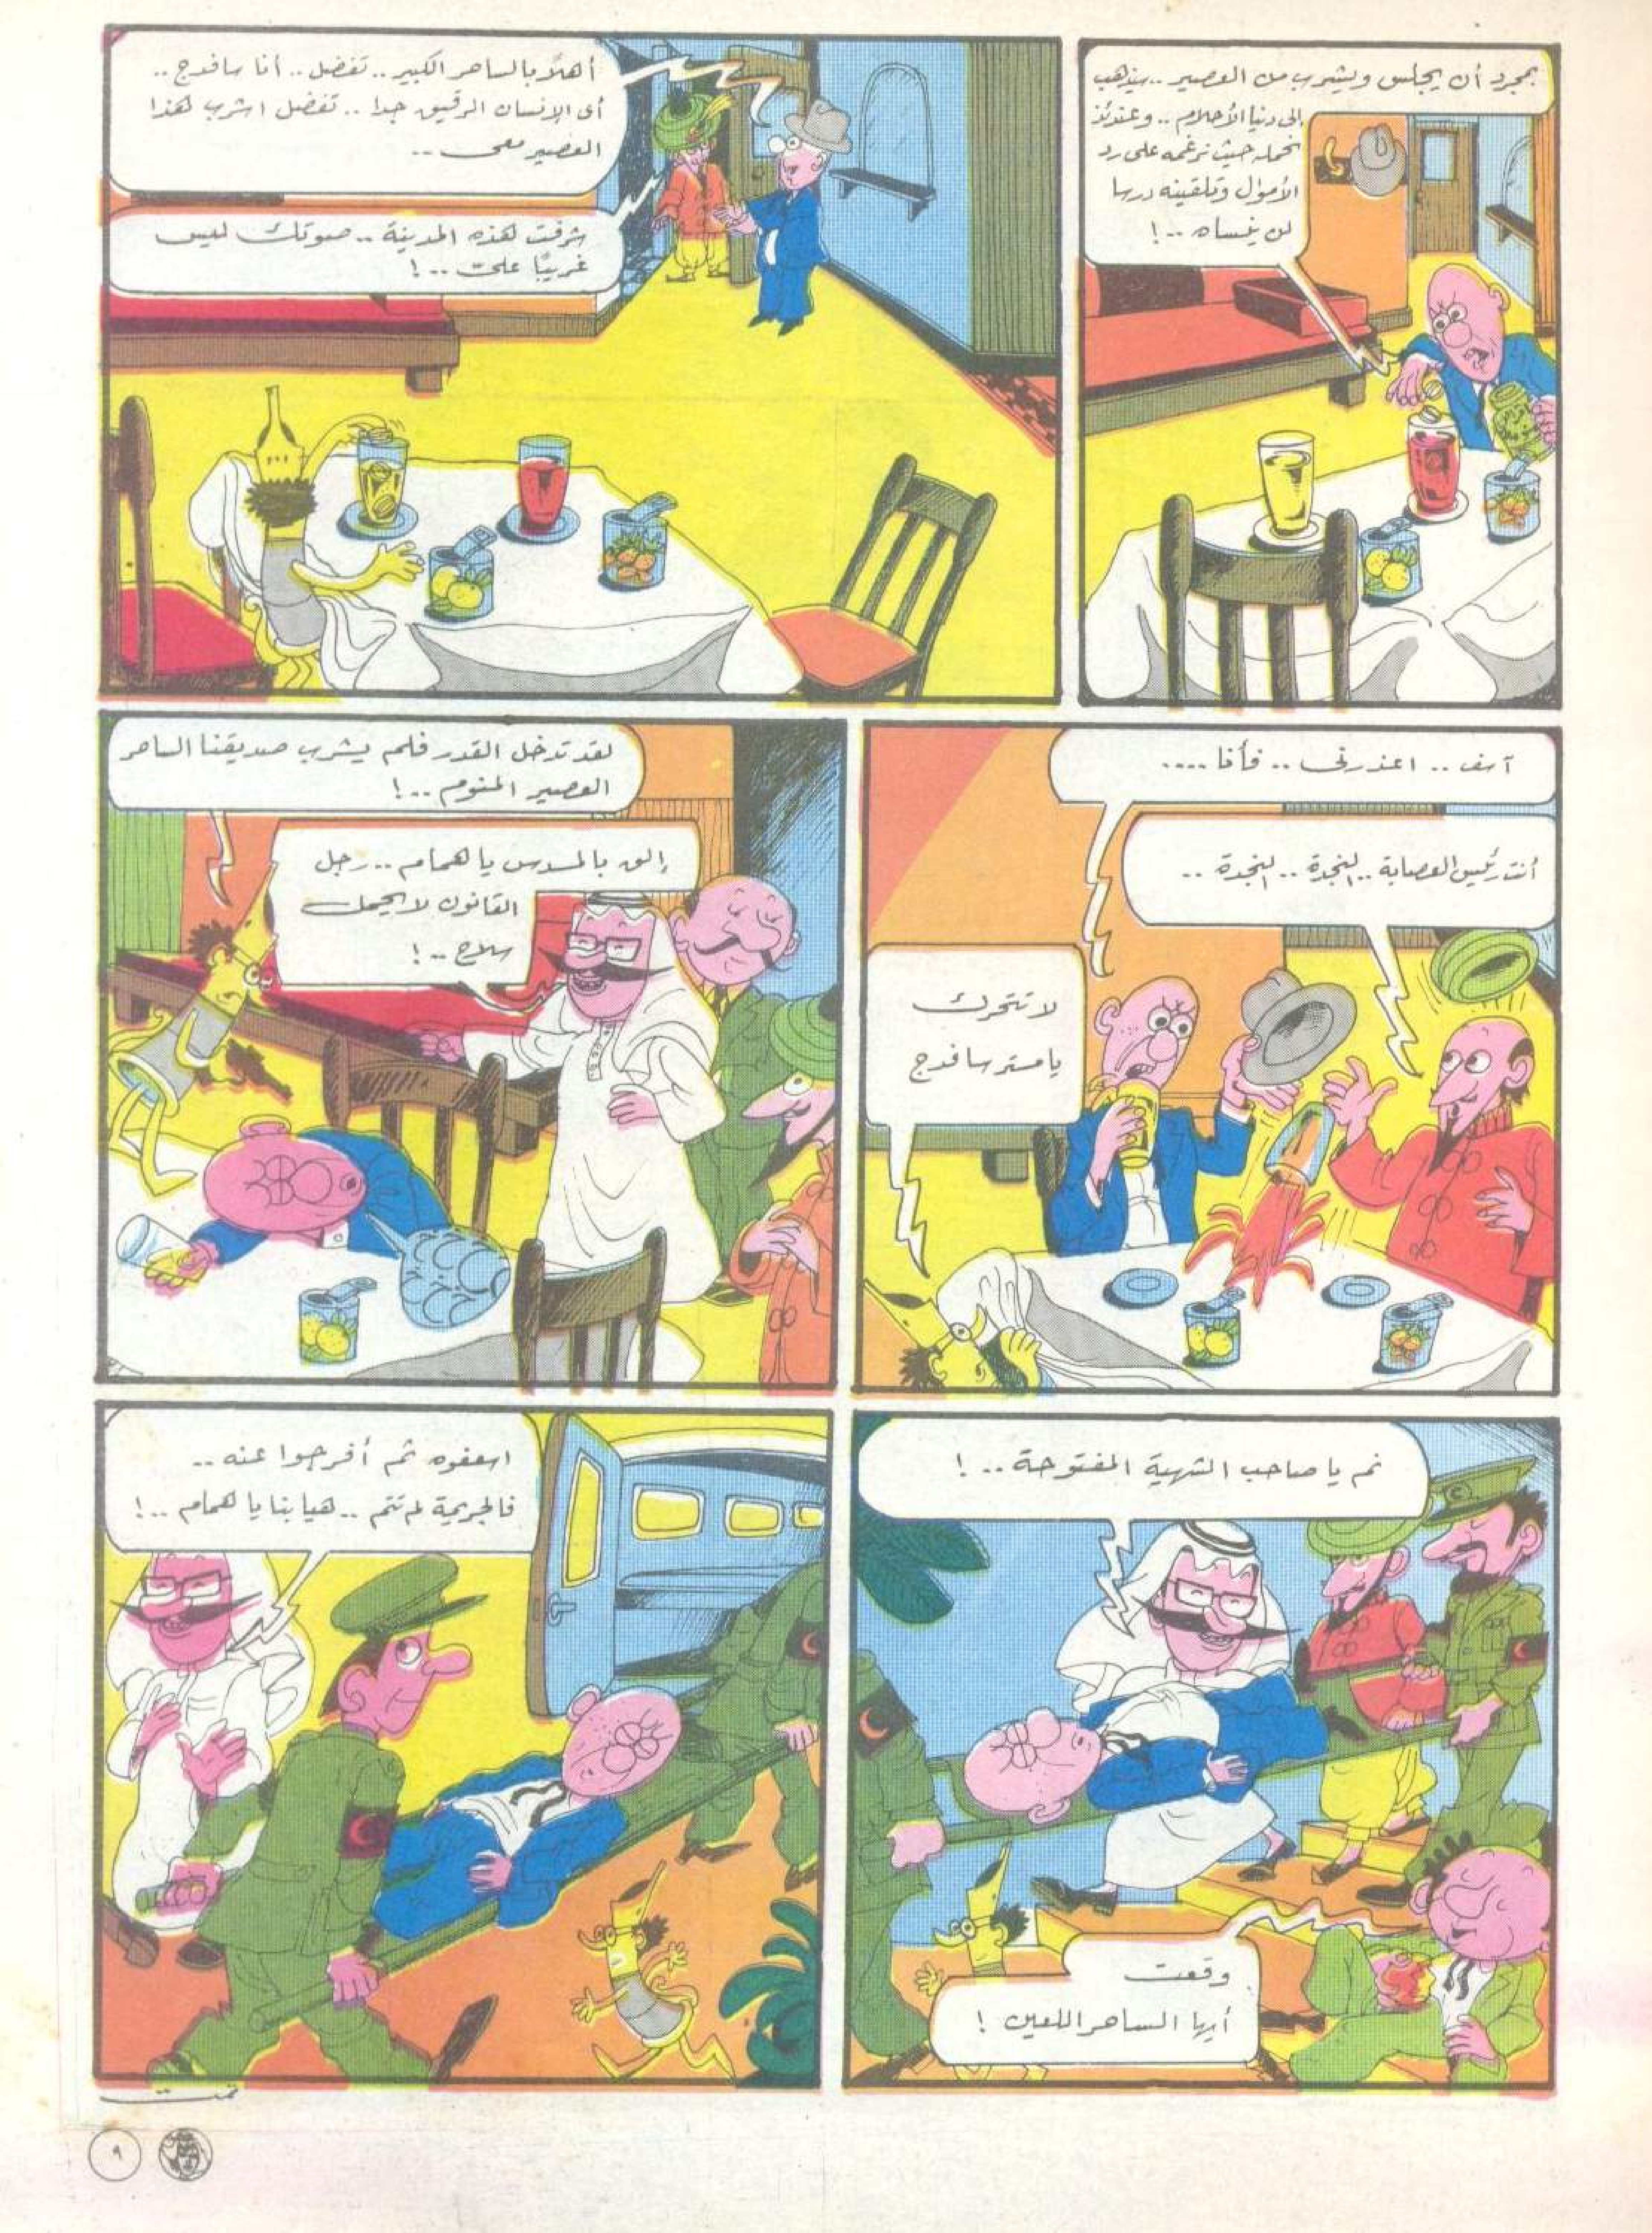 بمجرد أن يجلس ويشرب من العصير .. سيذهب
إلى دنيا الأحلام .. وعندئذ
نحمله حيث نرغمه على رد
الأموال وتلقينه درسا
لن ينساه .. !
أهلا بالساحر الكبير .. تفضل .. أنا سافدج ..
أى الإنسان الرقيق جدا .. تفضل اشرب هذا
العصير معى ..
شرفت هذه المدينة .. صوتك ليس
غريبًا على .. !
آسف .. اعذرنى .. فأنا ....
أنت رئيس العصابة .. النجدة .. النجدة ..
لا تتحرك
يا مستر سافدج
لقد تدخل القدر فلم يشرب صديقنا الساحر
العصير المنوم .. !
إلق بالمسدس يا همام .. رجل
القانون لا يحمل
سلاح .. !
نم يا صاحب الشهية المفتوحة .. !
وقعت
أيها الساحر اللعين !
اسعفوه ثم أفرجوا عنه ..
فالجريمة لم تتم .. هيا بنا يا همام .. !
تمت
٩